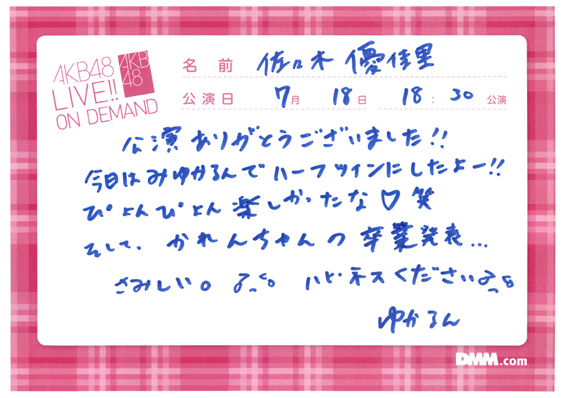 AKB48
LIVE!!
ON DEMAND
AKB
48
名前 佐々木 優佳里
公演日 7月 18日 18:30 公演
公演ありがとうございました!!
今日はみゆかるんでハーフツインにしたよー!!
ぴょんぴょん楽しかったな♡笑
そして、かれんちゃんの卒業発表…
さみしい。
ハピネスください
ゆかるん
DMM.com